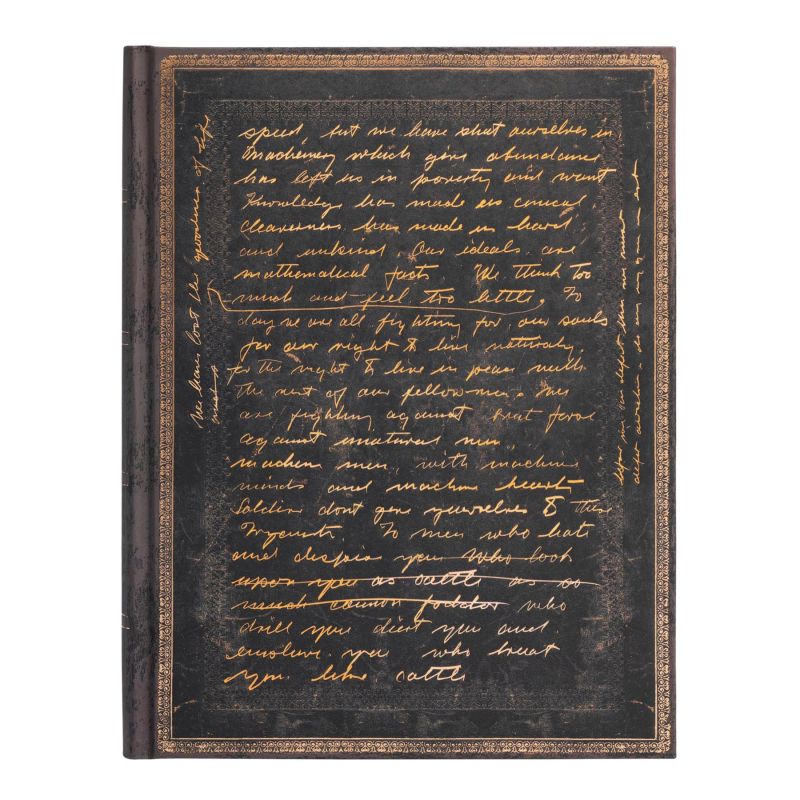 speed, but we have shut ourselves in
Machinery which give abundance
has left us in poverty and want
Knowledge has made us cynical
cleaverness has made us hard
and unkind. Our ideals are
mathematical facts. We think too
much and feel too little. To
day we are all fighting for our souls
for our right to live naturally,
for the right to live in peace with
the rest of our fellow men. We
are fighting against brut force
against unnatural men
machine men, with machine
minds and machine hearts
Soldiers dont give yourselves to these
To men who hate
and despise you who look
upon you as cattle as so
much cannon fodder who
drill you diet you and
enslave you who treat
you like cattle
We have lost the of life